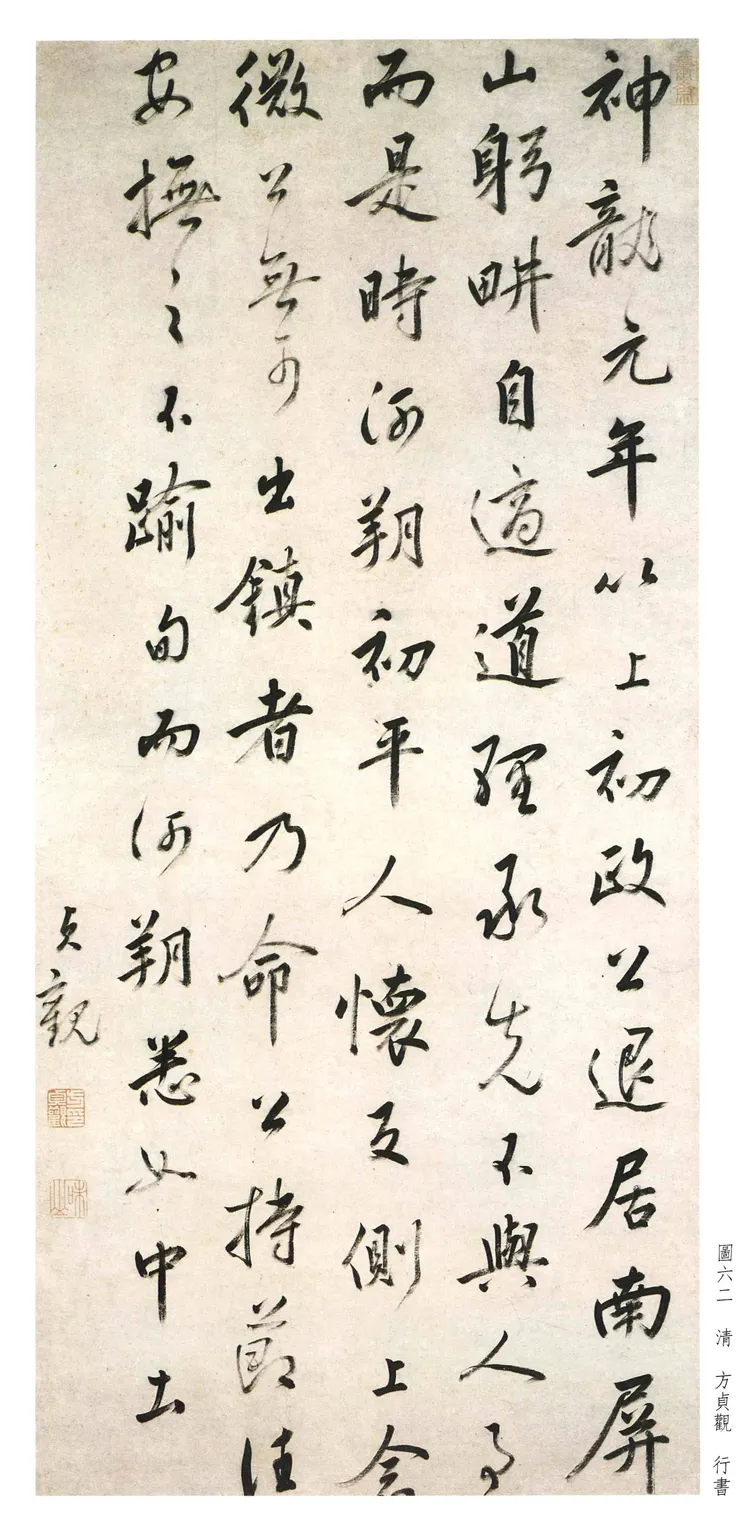 神龍元年以上初政公退居南屏
山躬畊自適道理承先不與人事
而是時河朔初平人懷反側上念
微公無可出鎮者乃命公持節往
安撫之不踰旬而河朔悉如中土
貞觀
圖六二 清 方貞觀 行書